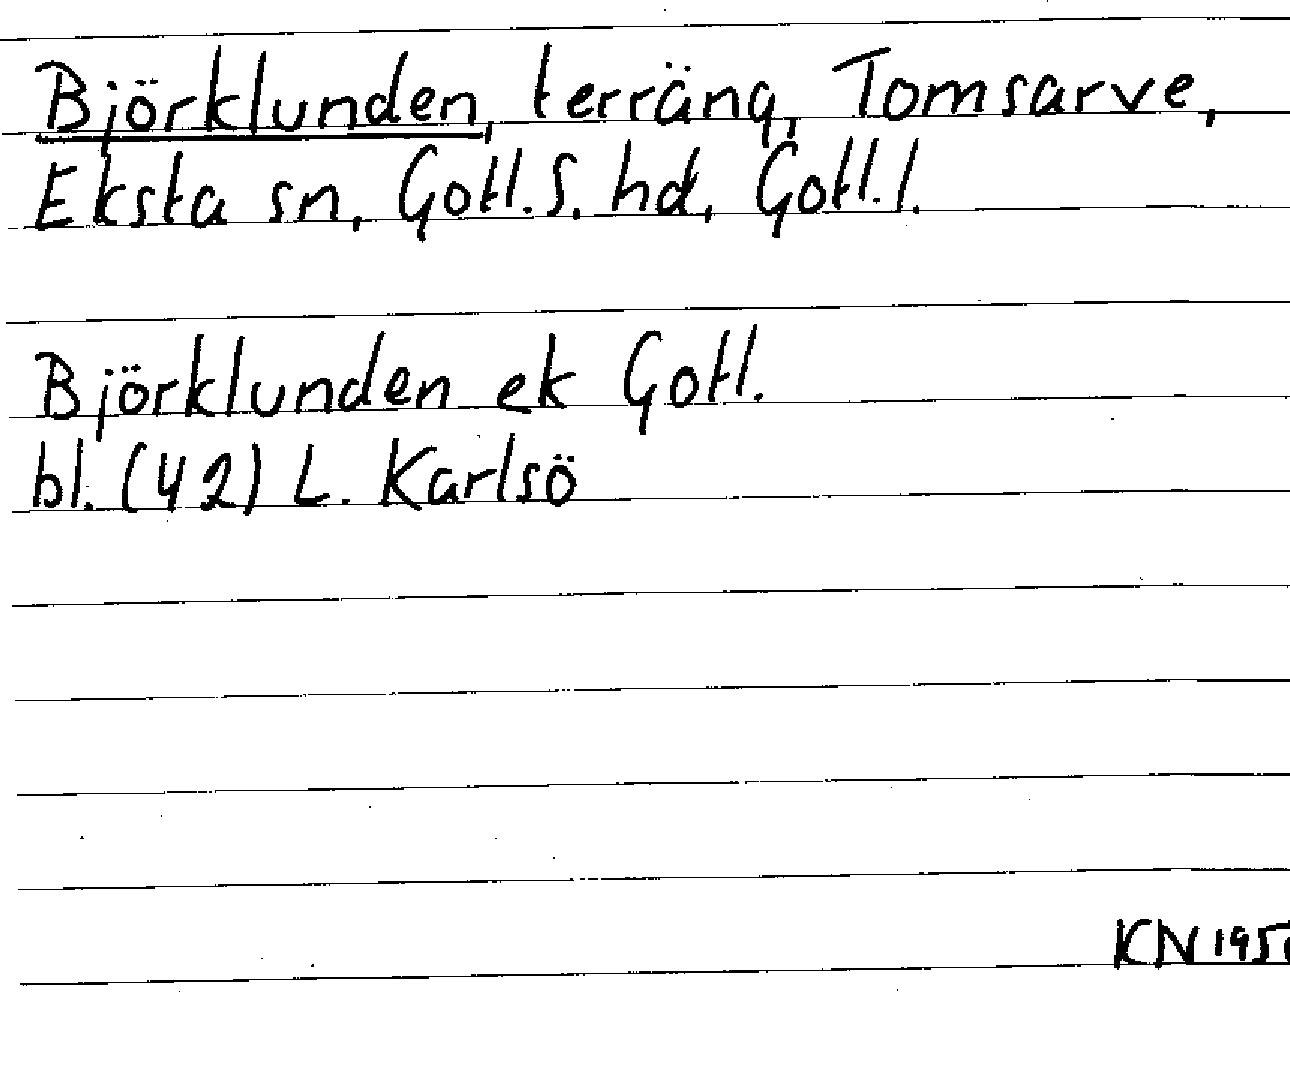 Björklunden, terräng, Tomsarve,
Eksta sn, Gotl. S. hd, Gotl. l.
Björklunden ek Gotl.
bl. (42) L. Karlsö
KN